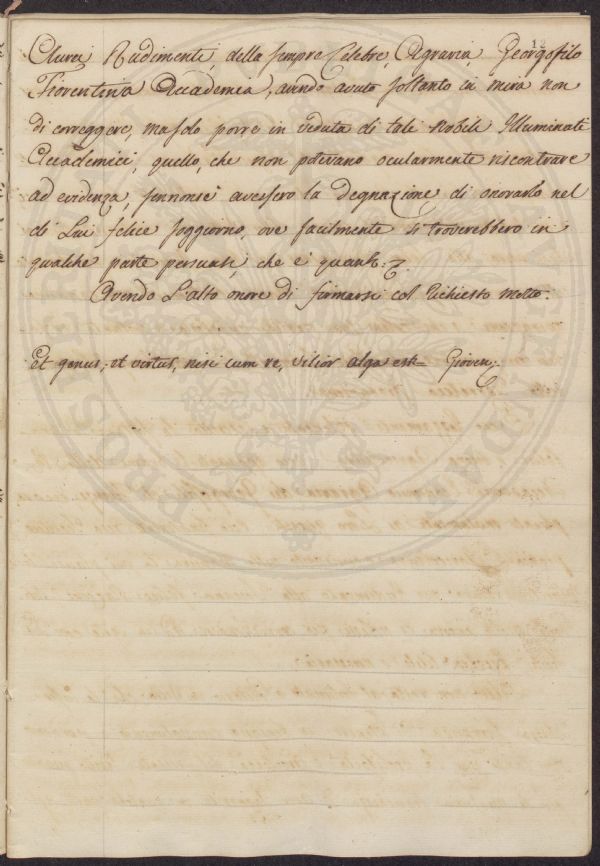 12
Aurei Rudimenti, della sempre Celebre, Agraria, Georgofilo
Fiorentina Accademia, avendo avuto soltanto in mira non
di correggere, ma solo porre in veduta di tali Nobili Illuminati
Accademici, quello, che non potevano ocularmente riscontrare
ad evidenza, sennonse avessero la Degnazione di onorarlo nel
di Lui felice soggiorno, ove facilmente si troverebbero in
qualche parte persuasi, che è quanto.
Avendo L'alto onore di firmarsi col richiesto Motto.
Et genus, et virtus, nisi cum re, vilior alga est= Gioven.
PROSPERITATI AUGENDAE